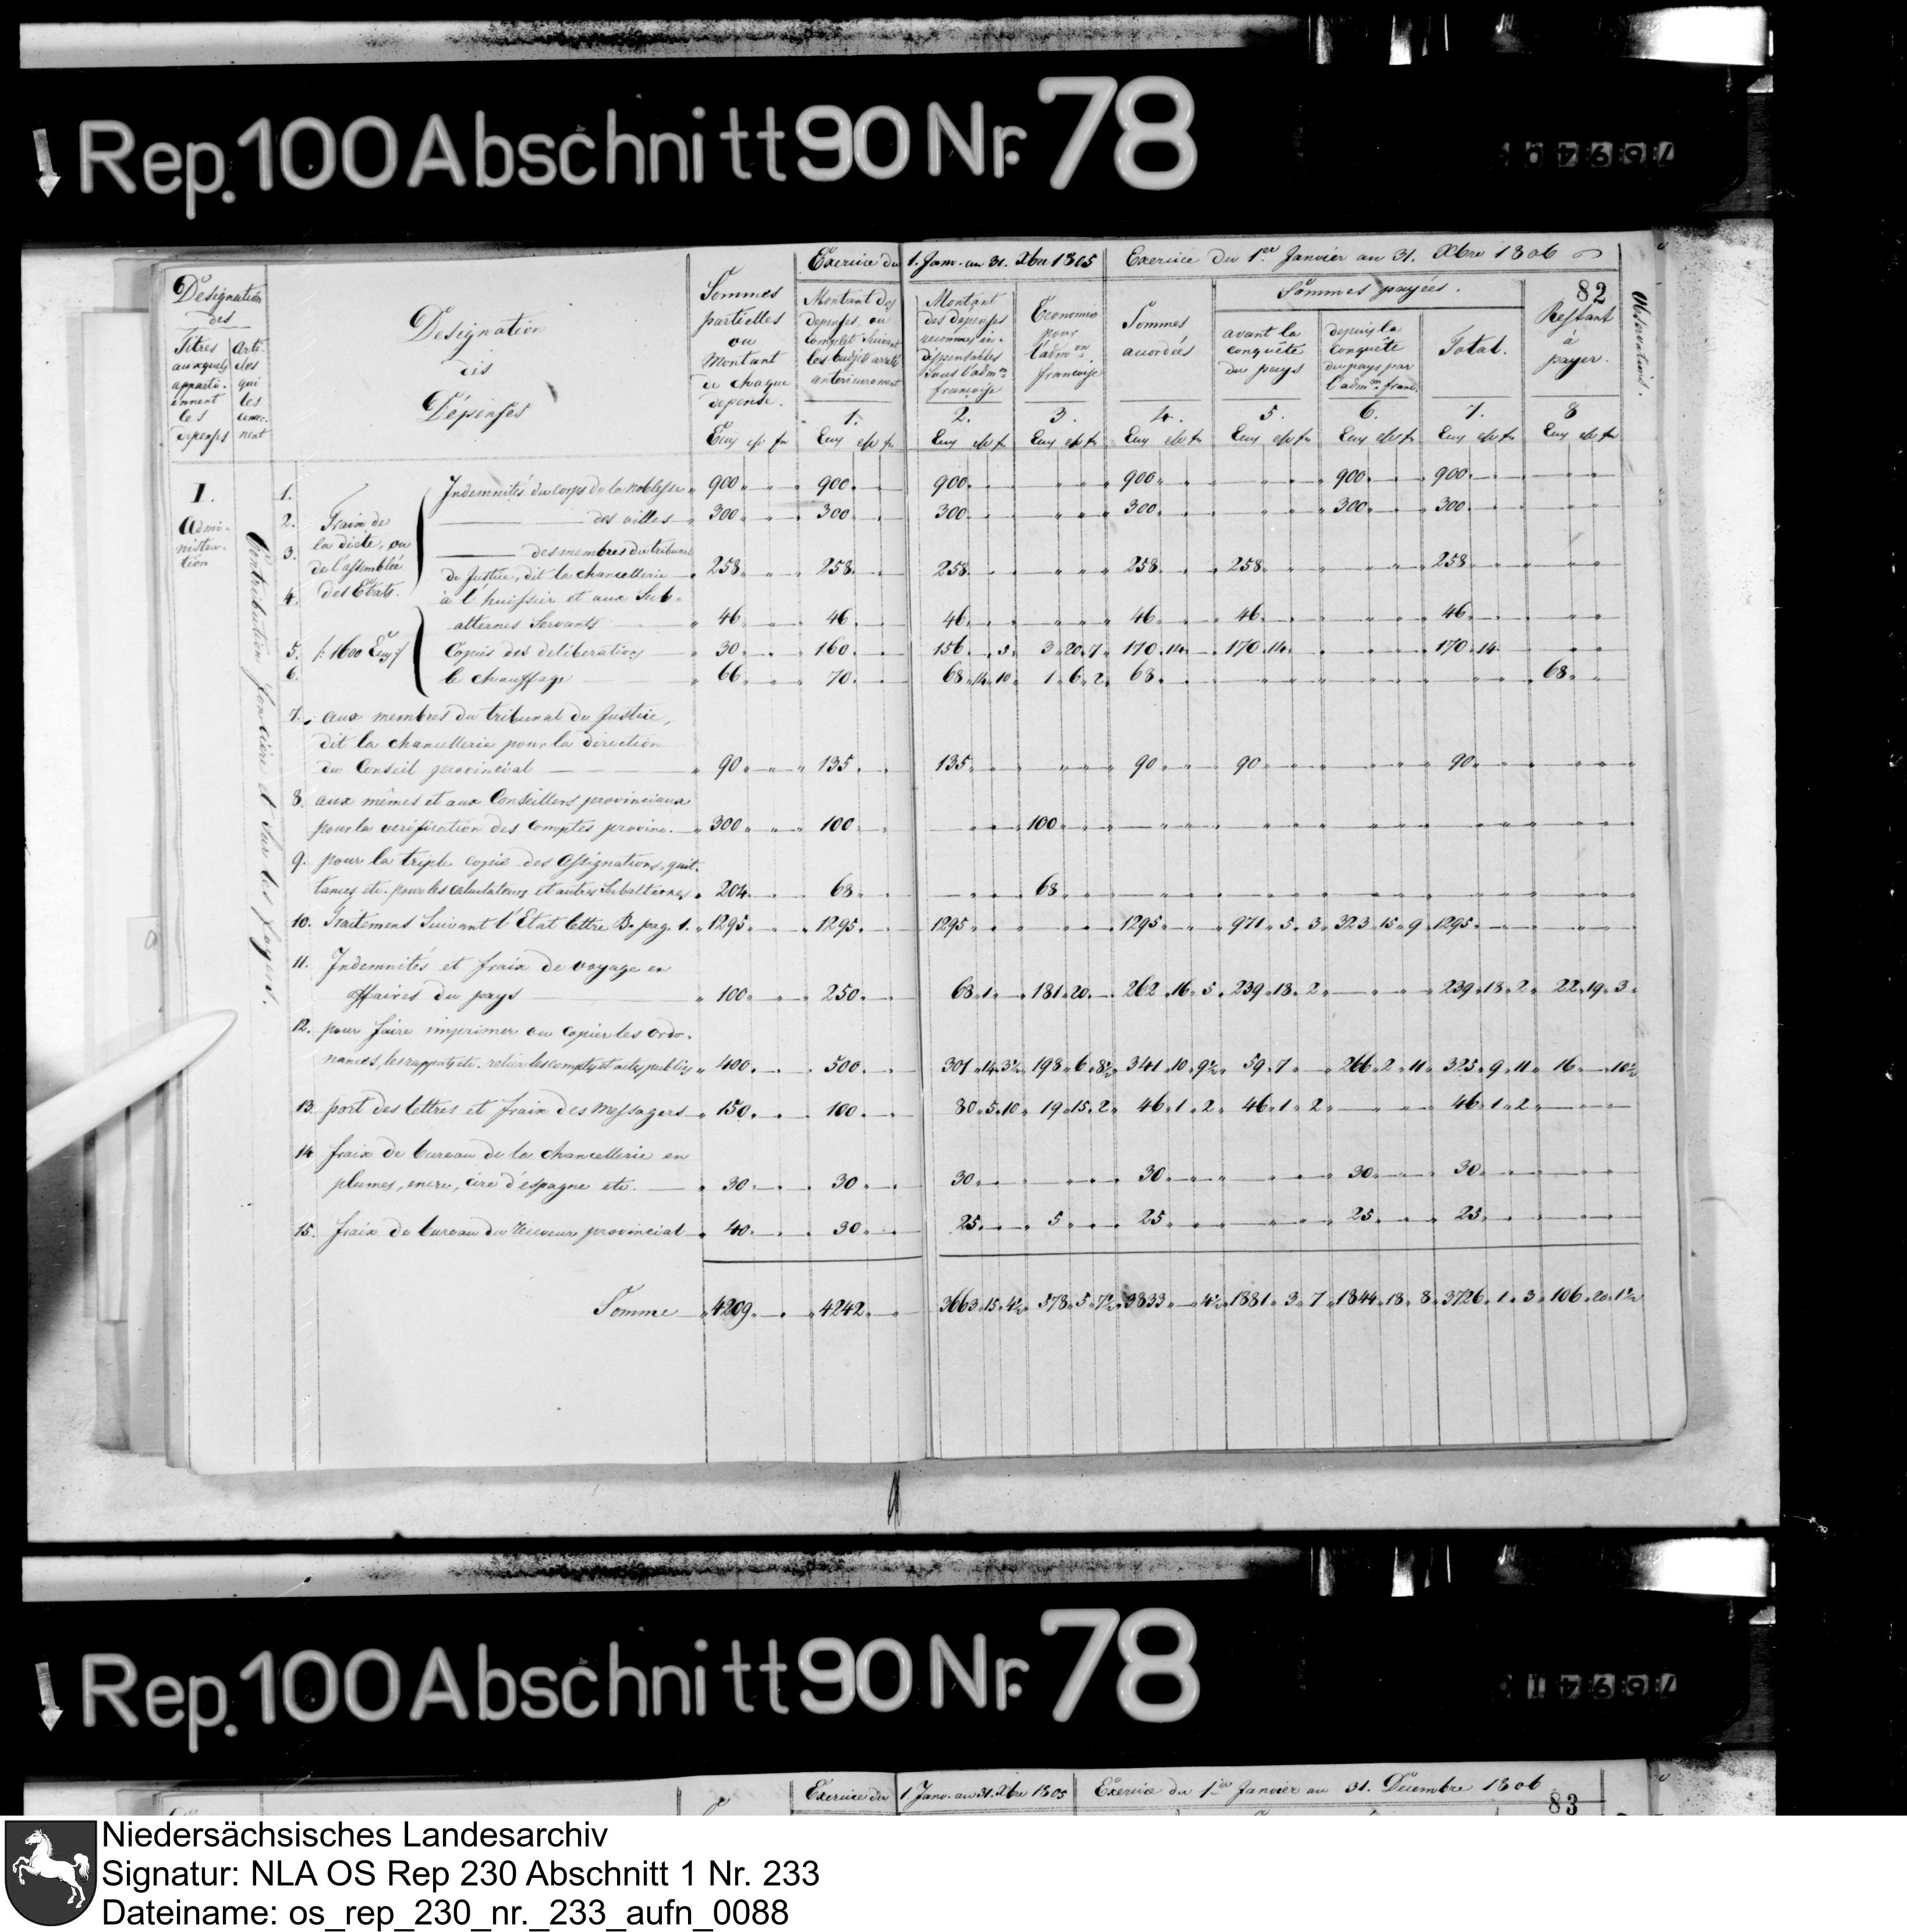 Rep. 100 Abschnitt 90 Nr. 78
Exercice du 1. Janv. au 31. Xbre 1805 Exercice du 1er Janvier au 31. Xbre 1806
82
Désignation
des
Titres
auxquels
apparti-
ennent
les
depenses
Arti-
cles
qui
les
concer-
nent
Désignation
des
Dépenses
Sommes
partielles
ou
Montant
de chaque
depense.
Montant des
depenses au
complet suivant
les budjets arretés
anterieurement
1.
Montant
des depenses
reconnues in-
dispensables
sous l'admon
françoise
2.
Economie
pour
l'admon
françoise
3.
Sommes
accordées
4.
Sommes payées.
avant la
conquête
du pays
5.
depuis la
conquête
du pays par
l'admon franc.
6.
Total.
7.
Restant
à
payer.
8
Observations.
I.
Admi-
nistra-
tion
Contribution foncière et sur les foyers.
Fraix de
la diete, ou
de l'assemblée
des Etats.
1. Indemnités du corps de la noblesse 900 900 900 900 900 900
2. des villes 300 300 300 300 300 300
3. des membres du tribunal
de Justice, dit la chancellerie 258 258 258 258 258 258
4. à l'huissier et aux Sub-
alternes Servants 46 46 46 46 46 46
5. Copies des deliberations 30 160 156 . 3 3 20 7 170 14 170 14 170 14
6. le chauffage 66 70 68 14 10 1 6 2 68 68
7. aux membres du tribunal de Justice,
dit la chancellerie pour la direction
du Conseil provincial 90 135 135 90 90 90
8. aux mêmes et aux Conseillers provinciaux
pour la verification des Comptes provinc. 300 100 100
9. pour la triple copie des Assignations, quit-
tances etc. pour les calculateurs et autres Subalternes 204 68 68
10. Traitement suivant l'Etat lettre B. pag. 1. 1295 1295 1295 1295 971 5 3 323 15 9 1295
11. Indemnités et fraix de voyage en
affaires du pays 100 250 68 1 181 20 262 16 5 239 18 2 239 18 2 22 19 3
12. pour faire imprimer ou copier les ordo-
nances, les rapports etc. relier les comptes et actes publics 400 500 301 14 3½ 198 6 8½ 341 10 9½ 59 7 266 2 11 325 9 11 16 10½
13. port des lettres et fraix des Messagers 150 100 80 5 10 19 15 2 46 1 2 46 1 2 46 1 2
14. fraix de bureau de la chancellerie en
plumes, encre, cire d'espagne etc. 30 30 30 30 30 30
15. fraix de bureau du receveur provincial 40 30 25 5 25 25 25
Somme 4209 4242 3663 15 4½ 578 5 7½ 3833 4½ 1881 3 7 1844 18 8 3726 1 3 106 20 1½
Rep. 100 Abschnitt 90 Nr. 78
Exercice du 1 Janv. au 31. Xbre 1805 Exercice du 1er Janvier au 31. Decembre 1806
83
Niedersächsisches Landesarchiv
Signatur: NLA OS Rep 230 Abschnitt 1 Nr. 233
Dateiname: os_rep_230_nr._233_aufn_0088